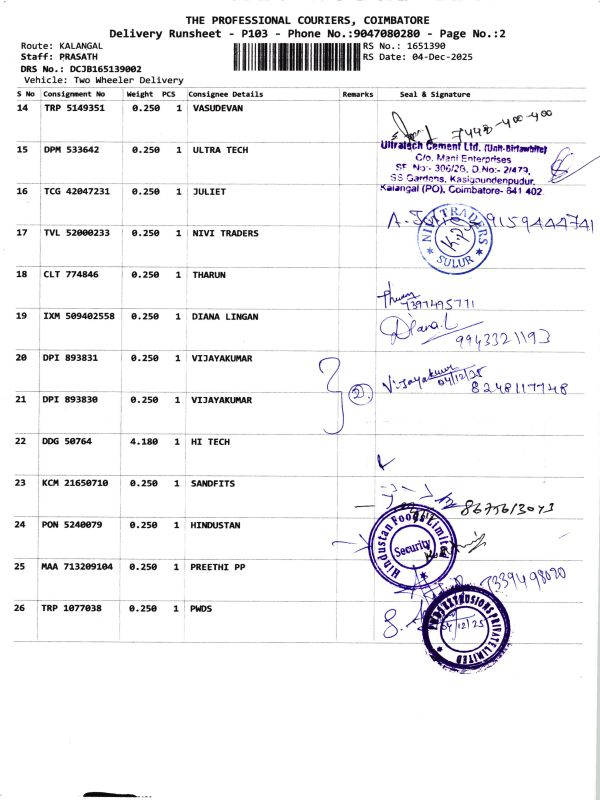 THE PROFESSIONAL COURIERS, COIMBATORE
Delivery Runsheet - P103 - Phone No.:9047080280 - Page No.:2
Route: KALANGAL
Staff: PRASATH
DRS No.: DCJB165139002
Vehicle: Two Wheeler Delivery
RS No.: 1651390
RS Date: 04-Dec-2025
S No Consignment No Weight PCS Consignee Details Remarks Seal & Signature
14 TRP 5149351 0.250 1 VASUDEVAN
7448-400-400
15 DPM 533642 0.250 1 ULTRA TECH
Ultratech Cement Ltd. (Unit-Birlawhite)
C/o. Mani Enterprises
SF. No:- 306/2B, D.No:- 2/479,
SS Gardens, Kasigoundenpudur,
Kalangal (PO), Coimbatore- 641 402.
16 TCG 42047231 0.250 1 JULIET
9159444741
17 TVL 52000233 0.250 1 NIVI TRADERS
NIVI TRADERS
SULUR
18 CLT 774846 0.250 1 THARUN
7397495771
19 IXM 509402558 0.250 1 DIANA LINGAN
Diana.L
9943321193
20 DPI 893831 0.250 1 VIJAYAKUMAR
2).
Vijayakumar
04/12/25
8248117748
21 DPI 893830 0.250 1 VIJAYAKUMAR
22 DDG 50764 4.180 1 HI TECH
23 KCM 21650710 0.250 1 SANDFITS
8675613073
24 PON 5240079 0.250 1 HINDUSTAN
Hindustan Foods Limited
Security
25 MAA 713209104 0.250 1 PREETHI PP
7339498020
26 TRP 1077038 0.250 1 PWDS
EXTRUSIONS PRIVATE LIMITED
04/12/25